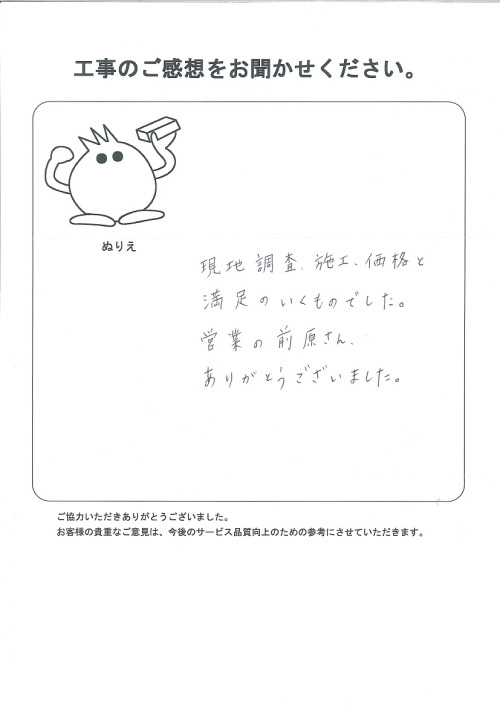 工事のご感想をお聞かせください。
ぬりえ
現地調査、施工、価格と
満足のいくものでした。
営業の前原さん、
ありがとうございました。
ご協力いただきありがとうございました。
お客様の貴重なご意見は、今後のサービス品質向上のための参考にさせていただきます。